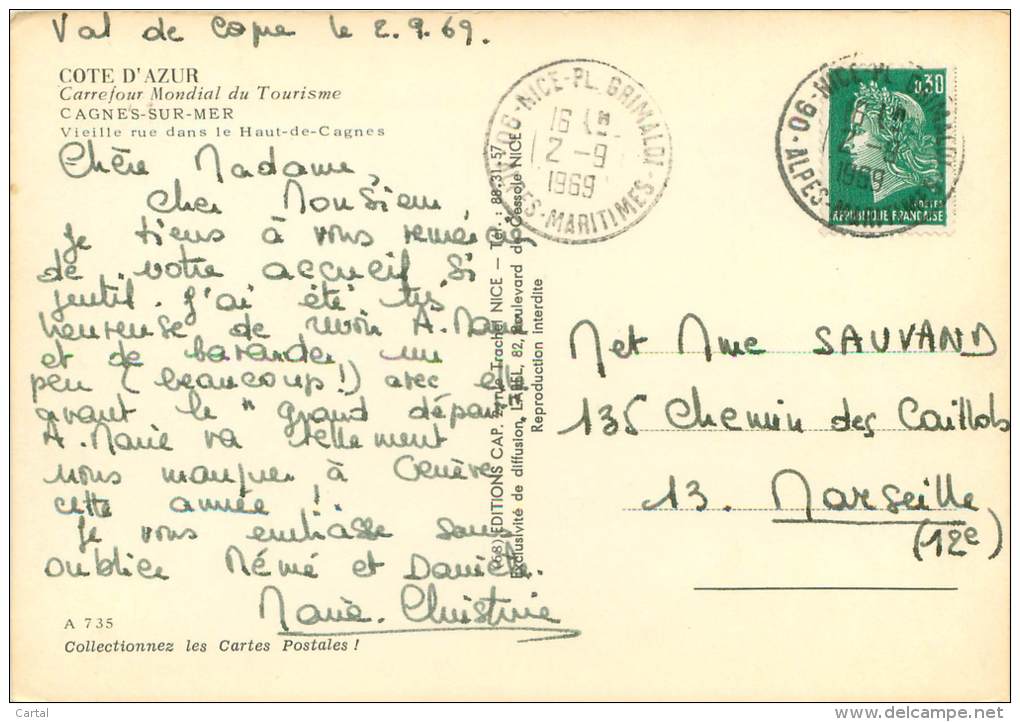 Val de Cope le 2.9.69.
COTE D'AZUR
Carrefour Mondial du Tourisme
CAGNES-SUR-MER
Vieille rue dans le Haut-de-Cagnes
Chère Madame,
Cher Monsieur
Je tiens à vous remercier
de votre accueil si
gentil. J'ai été très
heureuse de revoir A. Marie
et de bavarder un
peu (beaucoup!) avec elle
avant le "grand départ"
A. Marie va tellement
nous manquer à Genève
cette année!
Je vous embrasse sans
oublier Mémé et Danièle.
Marie-Christine
A 735
Collectionnez les Cartes Postales !
(68) EDITIONS CAP, rue Trachel NICE — Tél. : 88.31.57
Exclusivité de diffusion, LABEL, 82, Boulevard de Cessole NICE
Reproduction interdite
06-NICE-PL. GRIMALDI
16 H
2 -9
1969
ALPES-MARITIMES
06-NICE-PL. GRIMALDI
16 H
2 -9
1969
ALPES-MARITIMES
0,30
POSTES
REPUBLIQUE FRANÇAISE
M et Mme SAUVAND
135 Chemin des Caillols
13. Marseille
(12e)
Cartal
www.delcampe.net